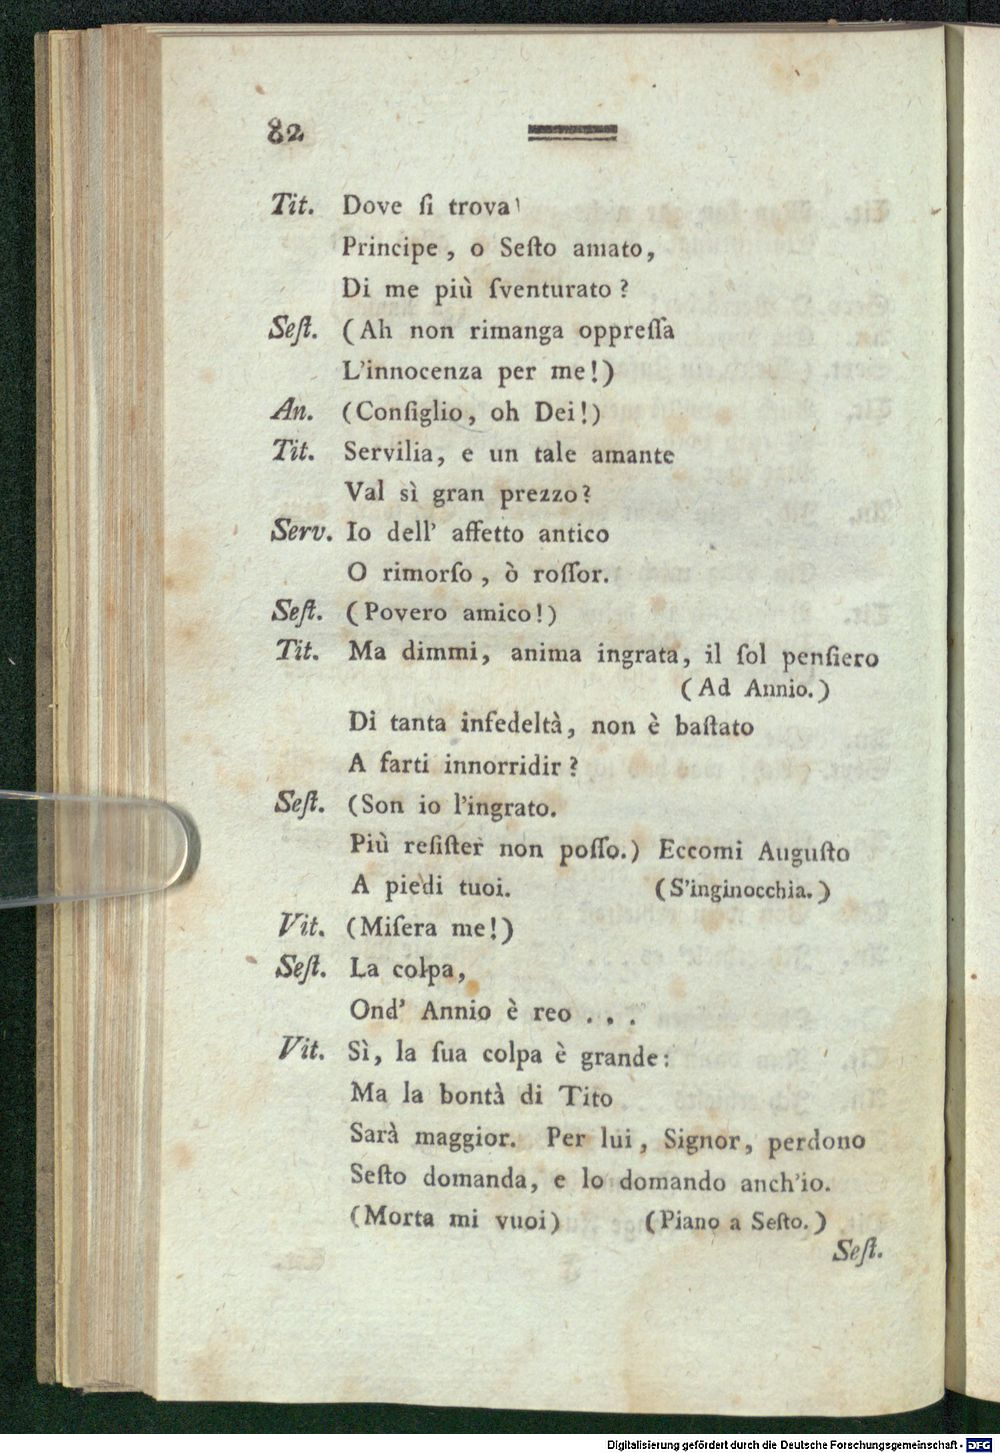 82
Tit. Dove ſi trova
Principe, o Seſto amato,
Di me più ſventurato?
Seſt. (Ah non rimanga oppreſſa
L'innocenza per me!)
An. (Conſiglio, oh Dei!)
Tit. Servilia, e un tale amante
Val sì gran prezzo?
Serv. Io dell' affetto antico
O rimorſo, ò roſſor.
Seſt. (Povero amico!)
Tit. Ma dimmi, anima ingrata, il ſol penſiero
(Ad Annio.)
Di tanta infedeltà, non è baſtato
A farti innorridir?
Seſt. (Son io l'ingrato.
Più reſiſter non poſſo.) Eccomi Auguſto
A piedi tuoi. (S'inginocchia.)
Vit. (Miſera me!)
Seſt. La colpa,
Ond' Annio è reo . . .
Vit. Sì, la ſua colpa è grande:
Ma la bontà di Tito
Sarà maggior. Per lui, Signor, perdono
Seſto domanda, e lo domando anch'io.
(Morta mi vuoi) (Piano a Seſto.)
Seſt.
Digitalisierung gefördert durch die Deutsche Forschungsgemeinschaft - DFG